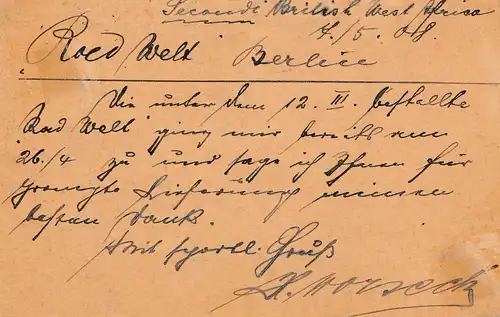 British West Africa
4./5. 08.
„Raed Welt Berlin
Die unter dem 12. III. bestellte
Rad Welt ging mir bereits am
26./4 zu und sage ich Ihnen für
prompte Lieferung meinen
besten Dank.
Mit sportl. Gruß